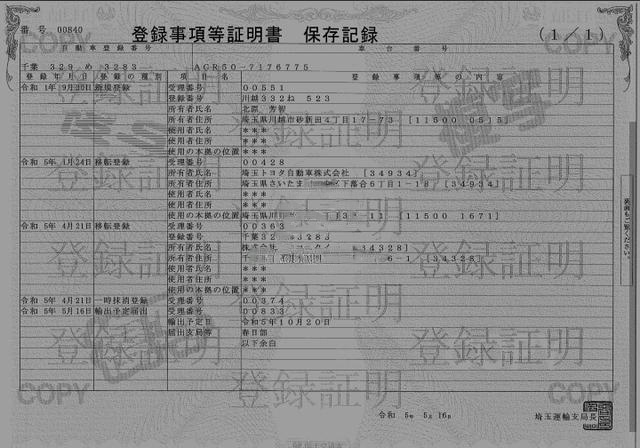 番号 00840
登録事項等証明書 保存記録
(1/1)
自動車登録番号 車台番号
千葉 329 め 3283 AGR50-7176775
登録年月日 登録の種別 項目名 登録事項等の内容
令和 1年 9月20日 新規登録 受理番号 00551
登録番号 川越332ね 523
所有者氏名 北原 芳
所有者住所 埼玉県川越市砂新田4丁目17-73 [11500 0515]
使用者氏名 ***
使用者住所 ***
使用の本拠の位置 ***
令和 5年 1月24日 移転登録 受理番号 00428
所有者氏名 埼玉トヨタ自動車株式会社 [34934]
所有者住所 埼玉県さいたま 区下落合6丁目1-18 [34934]
使用者氏名 ***
使用者住所 ***
使用の本拠の位置 埼玉県川 [11500 1671]
令和 5年 4月21日 移転登録 受理番号 00363
登録番号 千葉32 3283
所有者氏名 株式会社 [34328]
所有者住所 千 6-1 [34328]
使用者氏名 ***
使用者住所 ***
使用の本拠の位置 ***
令和 5年 4月21日 一時抹消登録 受理番号 00374
令和 5年 5月16日 輸出予定届出 受理番号 00833
輸出予定日 令和5年10月20日
届出支局等 春日部
以下余白
裏面もご覧ください。
令和 5年 5月16日
埼玉運輸支局長
COPY
登録証明